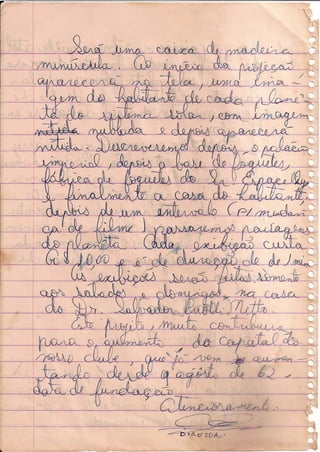 Será uma caixa de madeira
minúscula. Ao início da projeção
aparecerá na tela, uma ima-
gem do habitante de cada plane-
ta do sistema solar, com imagem
nublada e depois aparecerá
nítida. Descreveremos depois o palácio
imperial, depois a base de foguetes,
fábrica de foguetes do Sr.
e finalmente a casa do habitante,
depois de um intervalo (P/ mudan
ça de filme) passaremos paisagens
do planeta. Cada exibição custa
10,00 e é de duração de de 1 min
As exibições serão feitas somente
aos sábados e domingos na casa
do Dr. Salvador Netto.
Este projeto, muito contribuira
para o aumento do capital do
nosso clube, que já vem aumen-
tando desde 9 agosto de 62 -
data de fundação.
Atenciosamente.
DIRETOR.